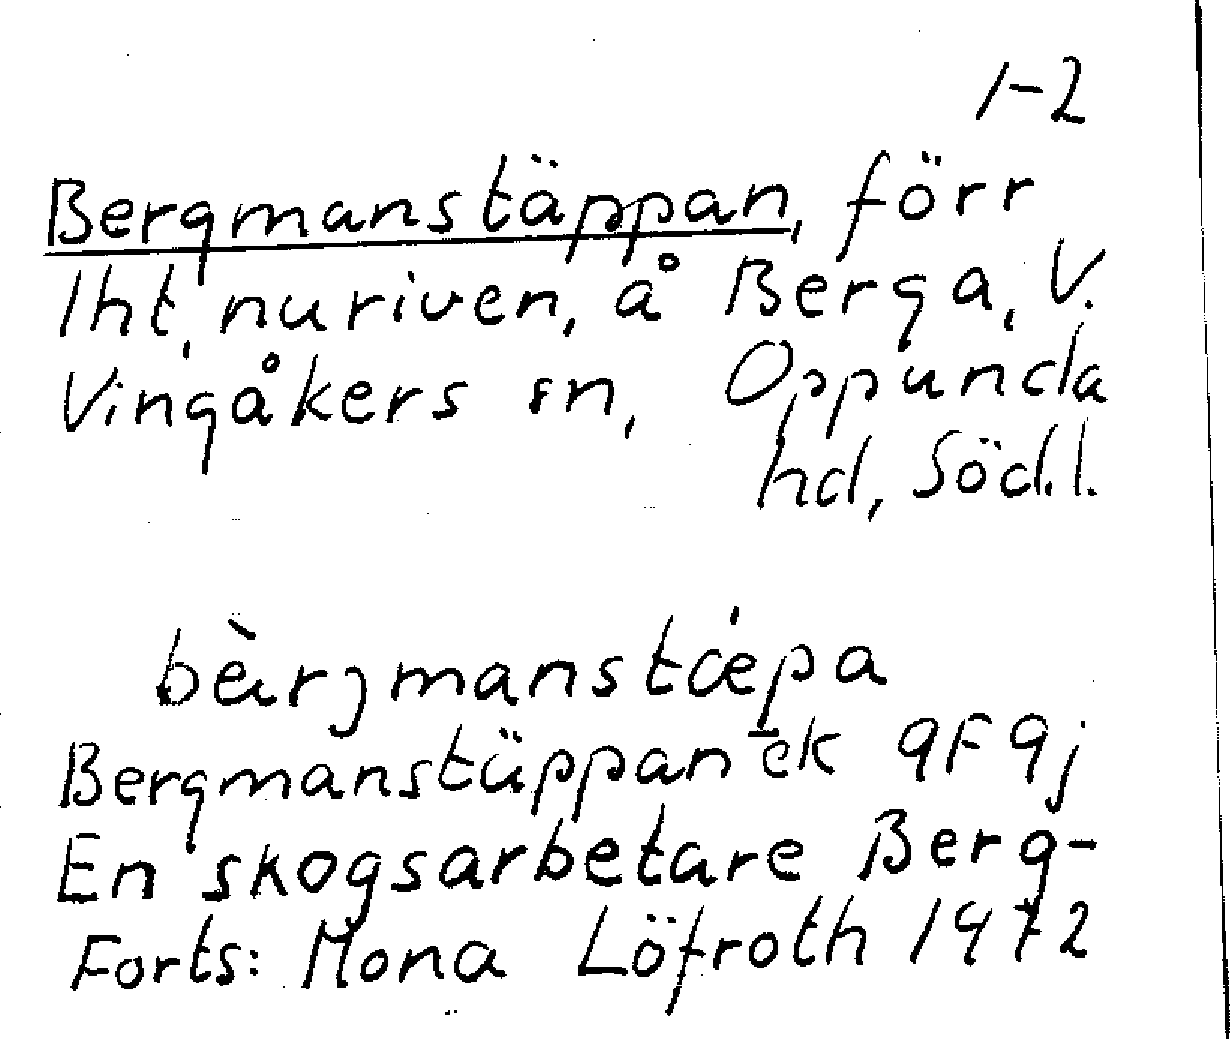 1-2
Bergmanstäppan, förr
lht, nu riven, å Berga, V.
Vingåkers sn, Oppunda
hd, Söd.l.
bæ̀rjmanstǽpa
Bergmanstäppan ek 9F9j
En skogsarbetare Berg-
Forts: Mona Löfroth 1972